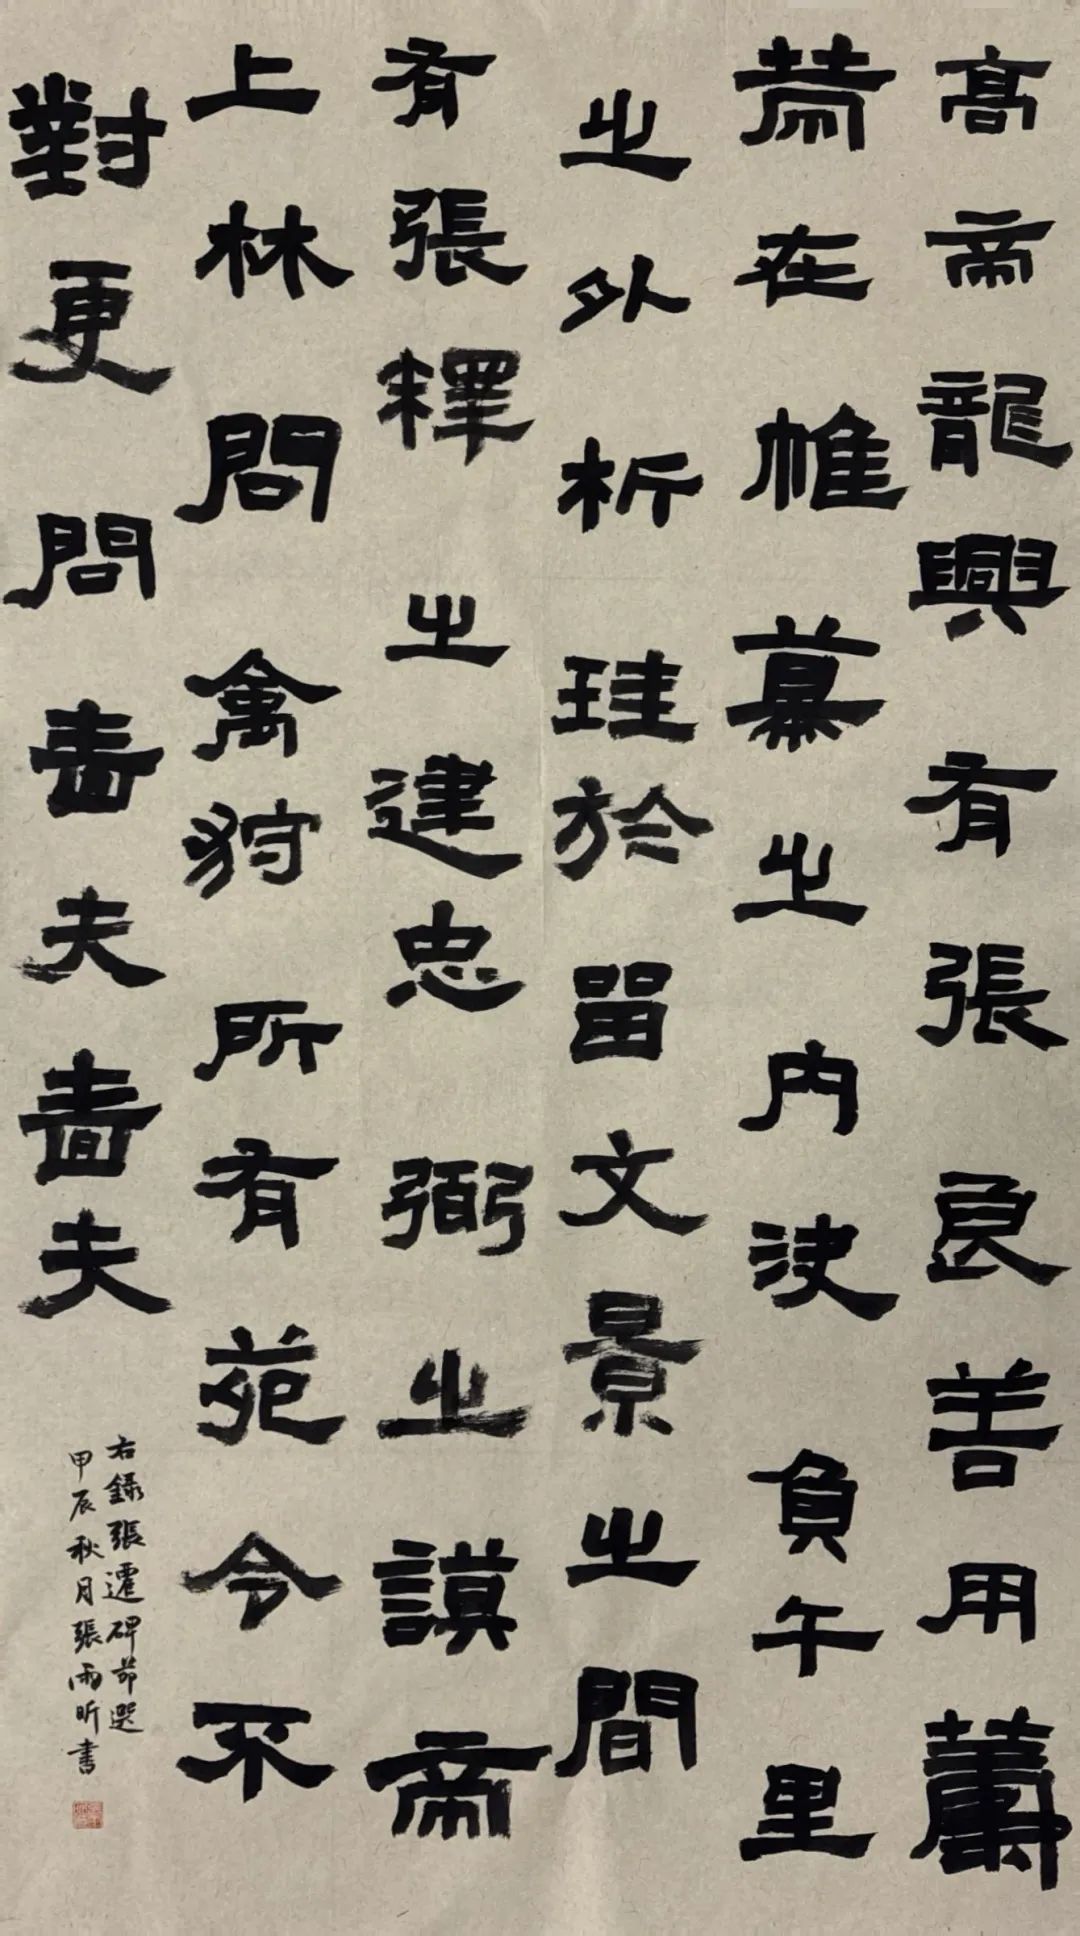 高帝龍興有張良善用籌
策在帷幕之内決負千里
之外析珪於留文景之間
有張釋之建忠弼之謨帝
上林問禽狩所有苑令不
對更問嗇夫嗇夫
右錄張遷碑節選
甲辰秋月張雨昕書